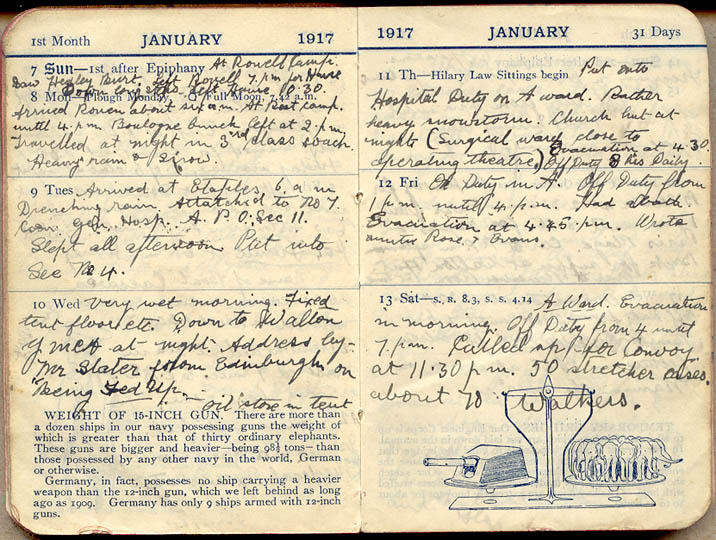 1st Month JANUARY 1917
7 Sun—1st after Epiphany At Rowell Camp.
Saw Hegley Burt. Left Rowell 7.p.m for Havre
Down long Left Havre 10.30.
8 Mon—Plough Monday. Full Moon, 7.42 a.m.
Arrived Rouen about six a.m. At Rest Camp.
until 4.p.m. Boulogne bunch left at 2 p.m.
Travelled at night in 3rd class coach.
Heavy rain & snow.
9 Tues Arrived at Etaples 6. a m
Drenching rain. Attatched to No 7.
Can. Gen. Hosp. A. P. O. Sec 11.
Slept all afternoon Put into
Sec No 4.
10 Wed Very wet morning. Fixed
tent floor etc. Down to Walton
Y M C A at night. Address by
Mr Slater from Edinburgh on
"Being Fed Up."
oil stove in tent
WEIGHT OF 15-INCH GUN. There are more than
a dozen ships in our navy possessing guns the weight of
which is greater than that of thirty ordinary elephants.
These guns are bigger and heavier—being 98½ tons—than
those possessed by any other navy in the world, German
or otherwise.
Germany, in fact, possesses no ship carrying a heavier
weapon than the 12-inch gun, which we left behind as long
ago as 1909. Germany has only 9 ships armed with 12-inch
guns.
1917 JANUARY 31 Days
11 Th—Hilary Law Sittings begin Put onto
Hospital Duty on A ward. Rather
heavy snowstorm. Church hut at
night (Surgical ward close to
operating theatre.) Evacuation at 4.30.
Off Duty 3 Hrs Daily.
12 Fri On Duty in A. Off Duty from
1 p.m. until 4.p.m. Had
Evacuation at 4.45.p.m. Wrote
auntie Rose & Evans.
13 Sat—S. R. 8.3, S. S. 4.14 A Ward. Evacuation
in morning. Off Duty from 4 until
7.p.m. Called up for Convoy
at 11.30 p.m. 50 stretcher cases.
about 70 Walkers.